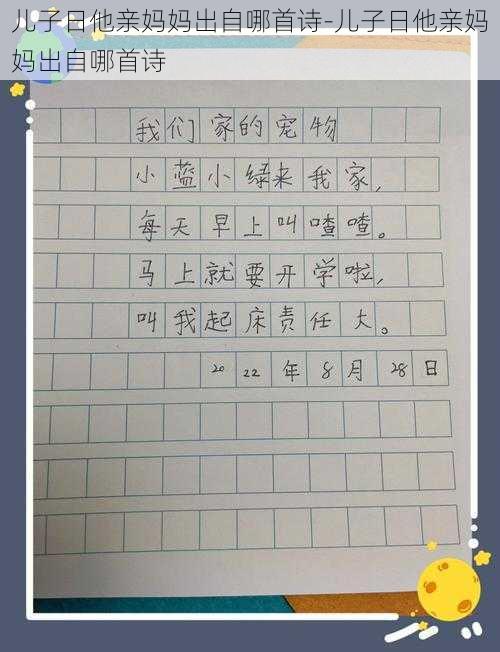 儿子日他亲妈妈出自哪首诗-儿子日他亲妈
妈出自哪首诗
我们家的宠物
小蓝小绿来我家，
每天早上叫喳喳。
马上就要开学啦，
叫我起床责任大。
2022年8月28日